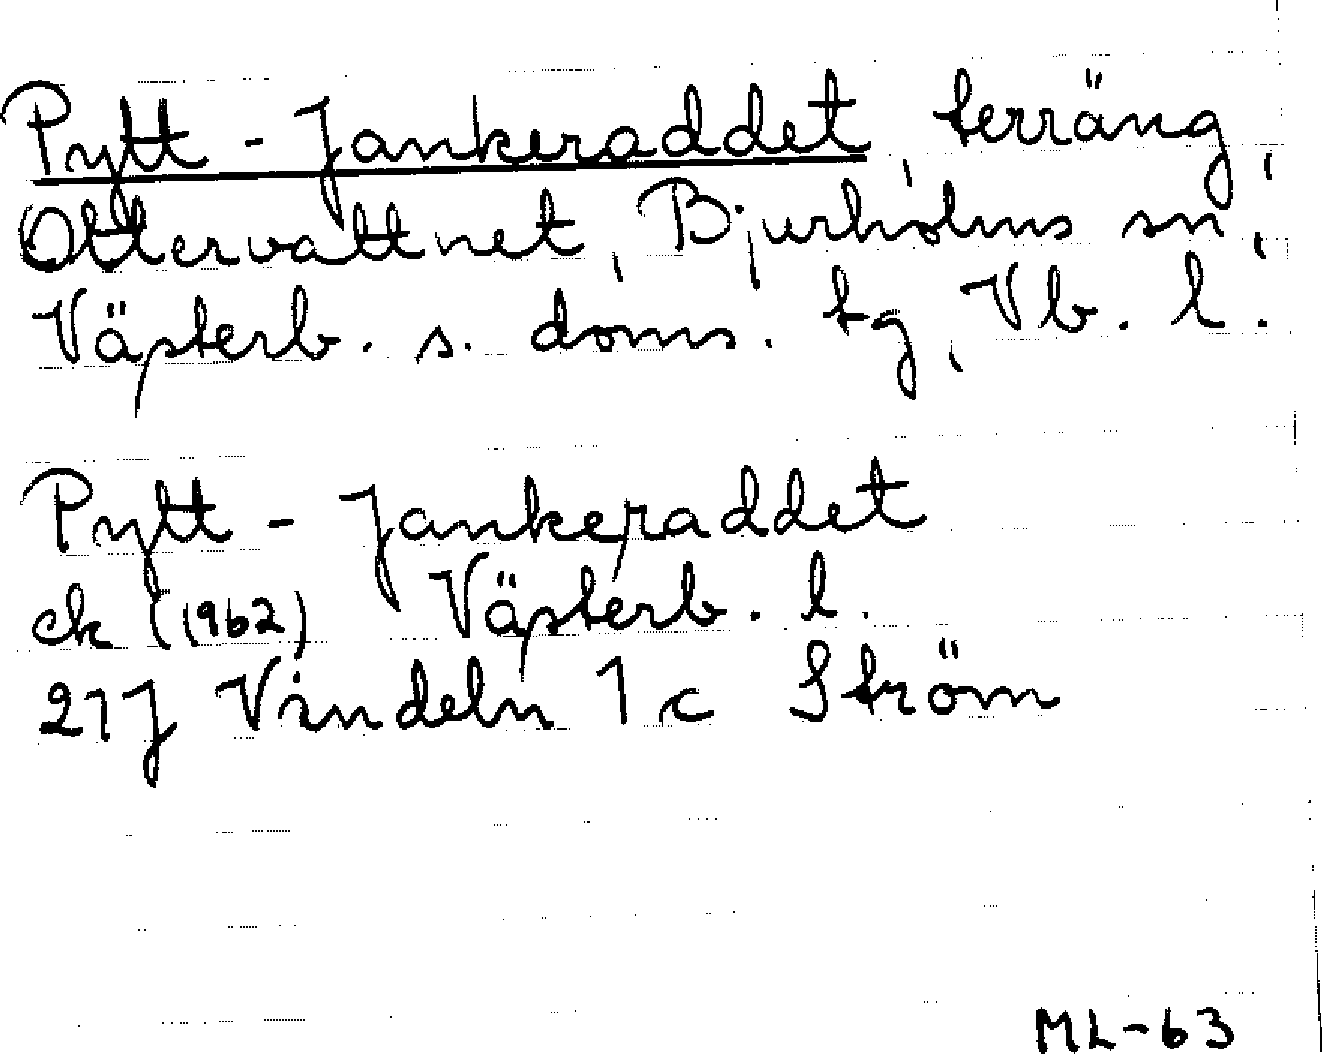 Pytt-Jankeraddet, terräng,
Ottervattnet, Bjurholms sn,
Västerb. s. doms. tg, Vb. l.
Pytt-Jankeraddet
ek (1962) Västerb. l.
21J Vindeln 1c Ström
ML-63